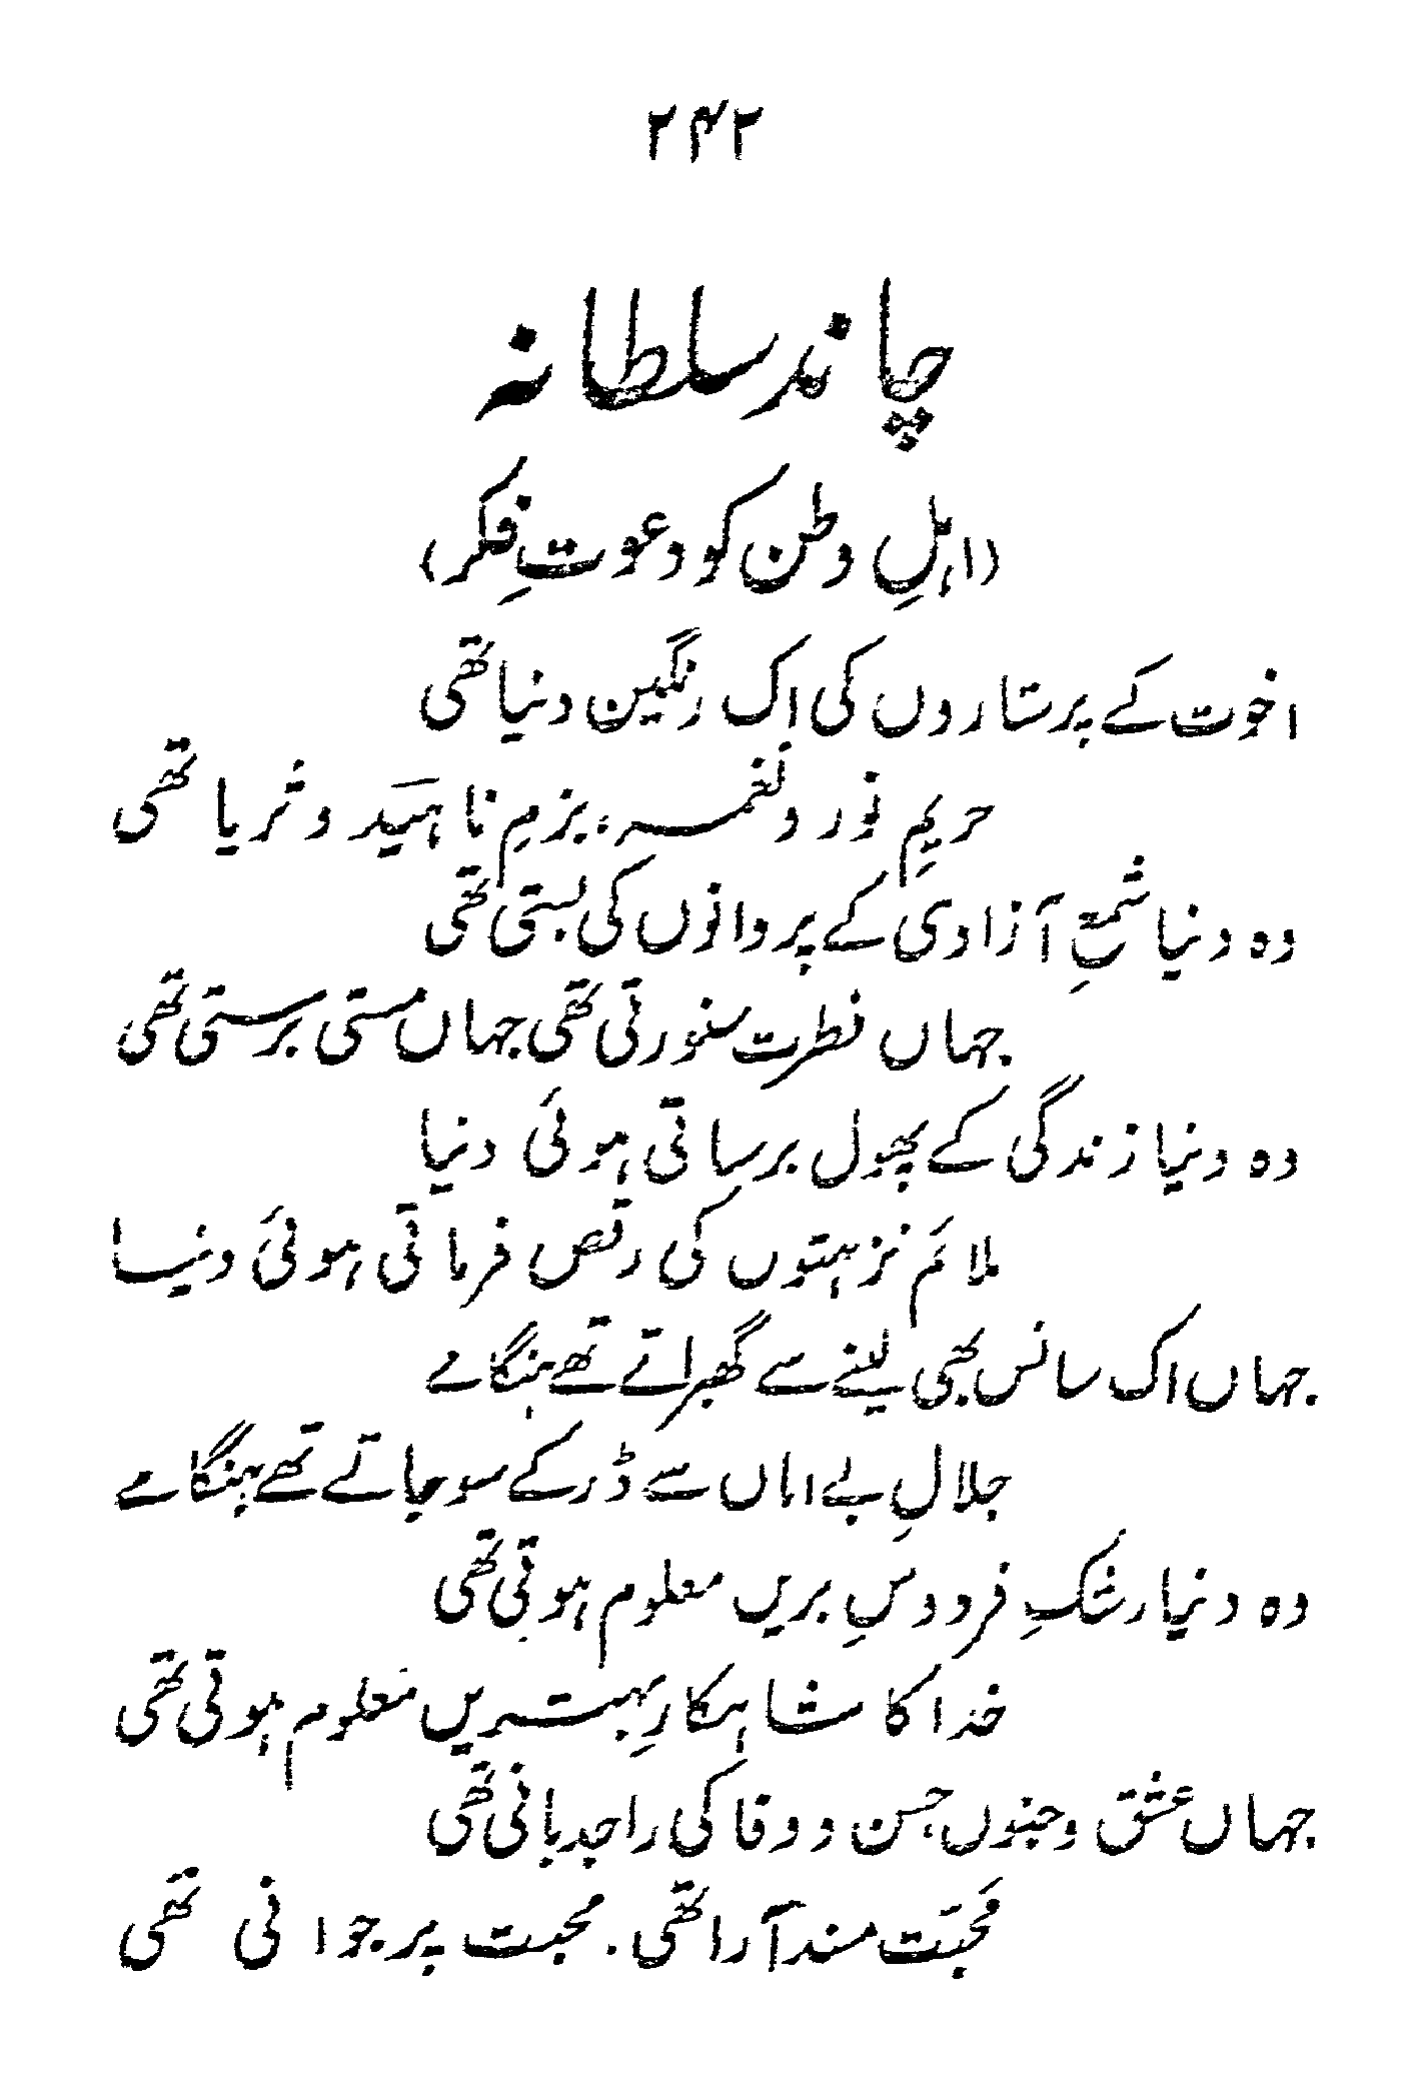 ۲۴۲
چاند سلطانہ
(اہلِ وطن کو دعوتِ فکر)
اخوت کے پرستاروں کی اک رنگین دنیا تھی
حریمِ نور و نغمہ، بزمِ ناہید و ثریا تھی
وہ دنیا شمعِ آزادی کے پروانوں کی بستی تھی
جہاں فطرت سنورتی تھی جہاں مستی برستی تھی
وہ دنیا زندگی کے پھول برساتی ہوئی دنیا
ملائم نزہتوں کی رقص فرماتی ہوئی دنیا
جہاں اک سانس بھی لینے سے گھبراتے تھے ہنگامے
جلالِ بے اماں سے ڈر کے سو جاتے تھے ہنگامے
وہ دنیا رشکِ فردوسِ بریں معلوم ہوتی تھی
خدا کا شاہکارِ بہتریں معلوم ہوتی تھی
جہاں عشق و جنوں حسن و وفا کی راجدہانی تھی
محبّت مسند آرا تھی. محبت پر جوانی تھی